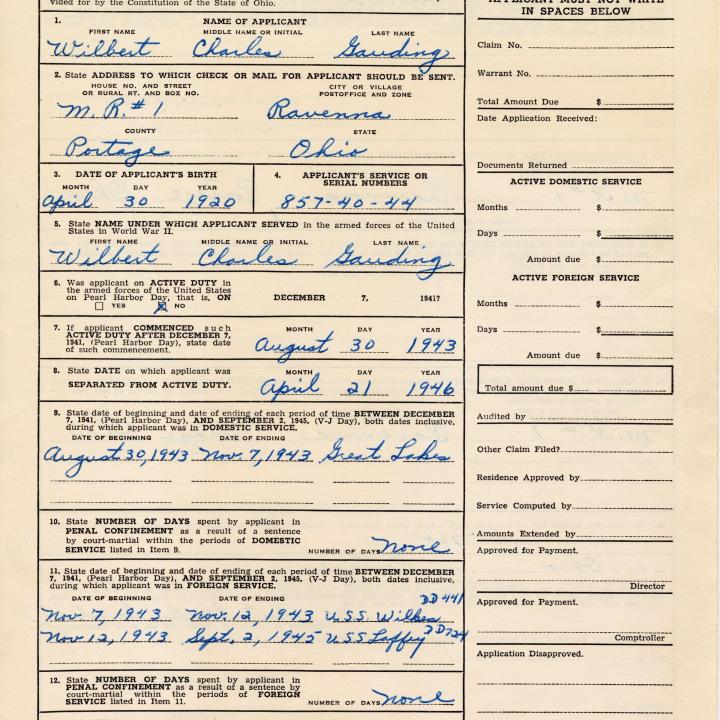 vided for by the Constitution of the State of Ohio.
1. NAME OF APPLICANT
FIRST NAME MIDDLE NAME OR INITIAL LAST NAME
Wilbert Charles Gauding
2. State ADDRESS TO WHICH CHECK OR MAIL FOR APPLICANT SHOULD BE SENT.
HOUSE NO. AND STREET OR RURAL RT. AND BOX NO. CITY OR VILLAGE POSTOFFICE AND ZONE
M. R. # 1 Ravenna
COUNTY STATE
Portage Ohio
3. DATE OF APPLICANT'S BIRTH
MONTH DAY YEAR
April 30 1920
4. APPLICANT'S SERVICE OR SERIAL NUMBERS
857-40-44
5. State NAME UNDER WHICH APPLICANT SERVED in the armed forces of the United
States in World War II.
FIRST NAME MIDDLE NAME OR INITIAL LAST NAME
Wilbert Charles Gauding
6. Was applicant on ACTIVE DUTY in
the armed forces of the United States
on Pearl Harbor Day, that is, ON DECEMBER 7, 1941?
YES NO
7. If applicant COMMENCED such
ACTIVE DUTY AFTER DECEMBER 7,
1941, (Pearl Harbor Day), state date
of such commencement.
MONTH DAY YEAR
August 30 1943
8. State DATE on which applicant was
SEPARATED FROM ACTIVE DUTY.
MONTH DAY YEAR
April 21 1946
9. State date of beginning and date of ending of each period of time BETWEEN DECEMBER
7, 1941, (Pearl Harbor Day), AND SEPTEMBER 2, 1945, (V-J Day), both dates inclusive,
during which applicant was in DOMESTIC SERVICE.
DATE OF BEGINNING DATE OF ENDING
August 30, 1943 Nov. 7, 1943 Great Lakes
10. State NUMBER OF DAYS spent by applicant in
PENAL CONFINEMENT as a result of a sentence
by court-martial within the periods of DOMESTIC
SERVICE listed in Item 9. NUMBER OF DAYS none
11. State date of beginning and date of ending of each period of time BETWEEN DECEMBER
7, 1941, (Pearl Harbor Day), AND SEPTEMBER 2, 1945, (V-J Day), both dates inclusive,
during which applicant was in FOREIGN SERVICE.
DATE OF BEGINNING DATE OF ENDING
Nov. 7, 1943 Nov. 12, 1943 U.S.S. Wilkes DD 441
Nov. 12, 1943 Sept. 2, 1945 U S S Laffey DD 724
12. State NUMBER OF DAYS spent by applicant in
PENAL CONFINEMENT as a result of a sentence by
court-martial within the periods of FOREIGN
SERVICE listed in Item 11. NUMBER OF DAYS none
APPLICANT MUST NOT WRITE
IN SPACES BELOW
Claim No.
Warrant No.
Total Amount Due $
Date Application Received:
Documents Returned
ACTIVE DOMESTIC SERVICE
Months $
Days $
Amount due $
ACTIVE FOREIGN SERVICE
Months $
Days $
Amount due $
Total amount due $
Audited by
Other Claim Filed?
Residence Approved by
Service Computed by
Amounts Extended by
Approved for Payment.
Director
Approved for Payment.
Comptroller
Application Disapproved.